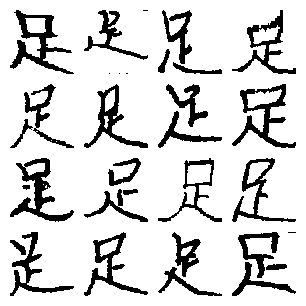 足足足足
足足足足
足足足足
足足足足